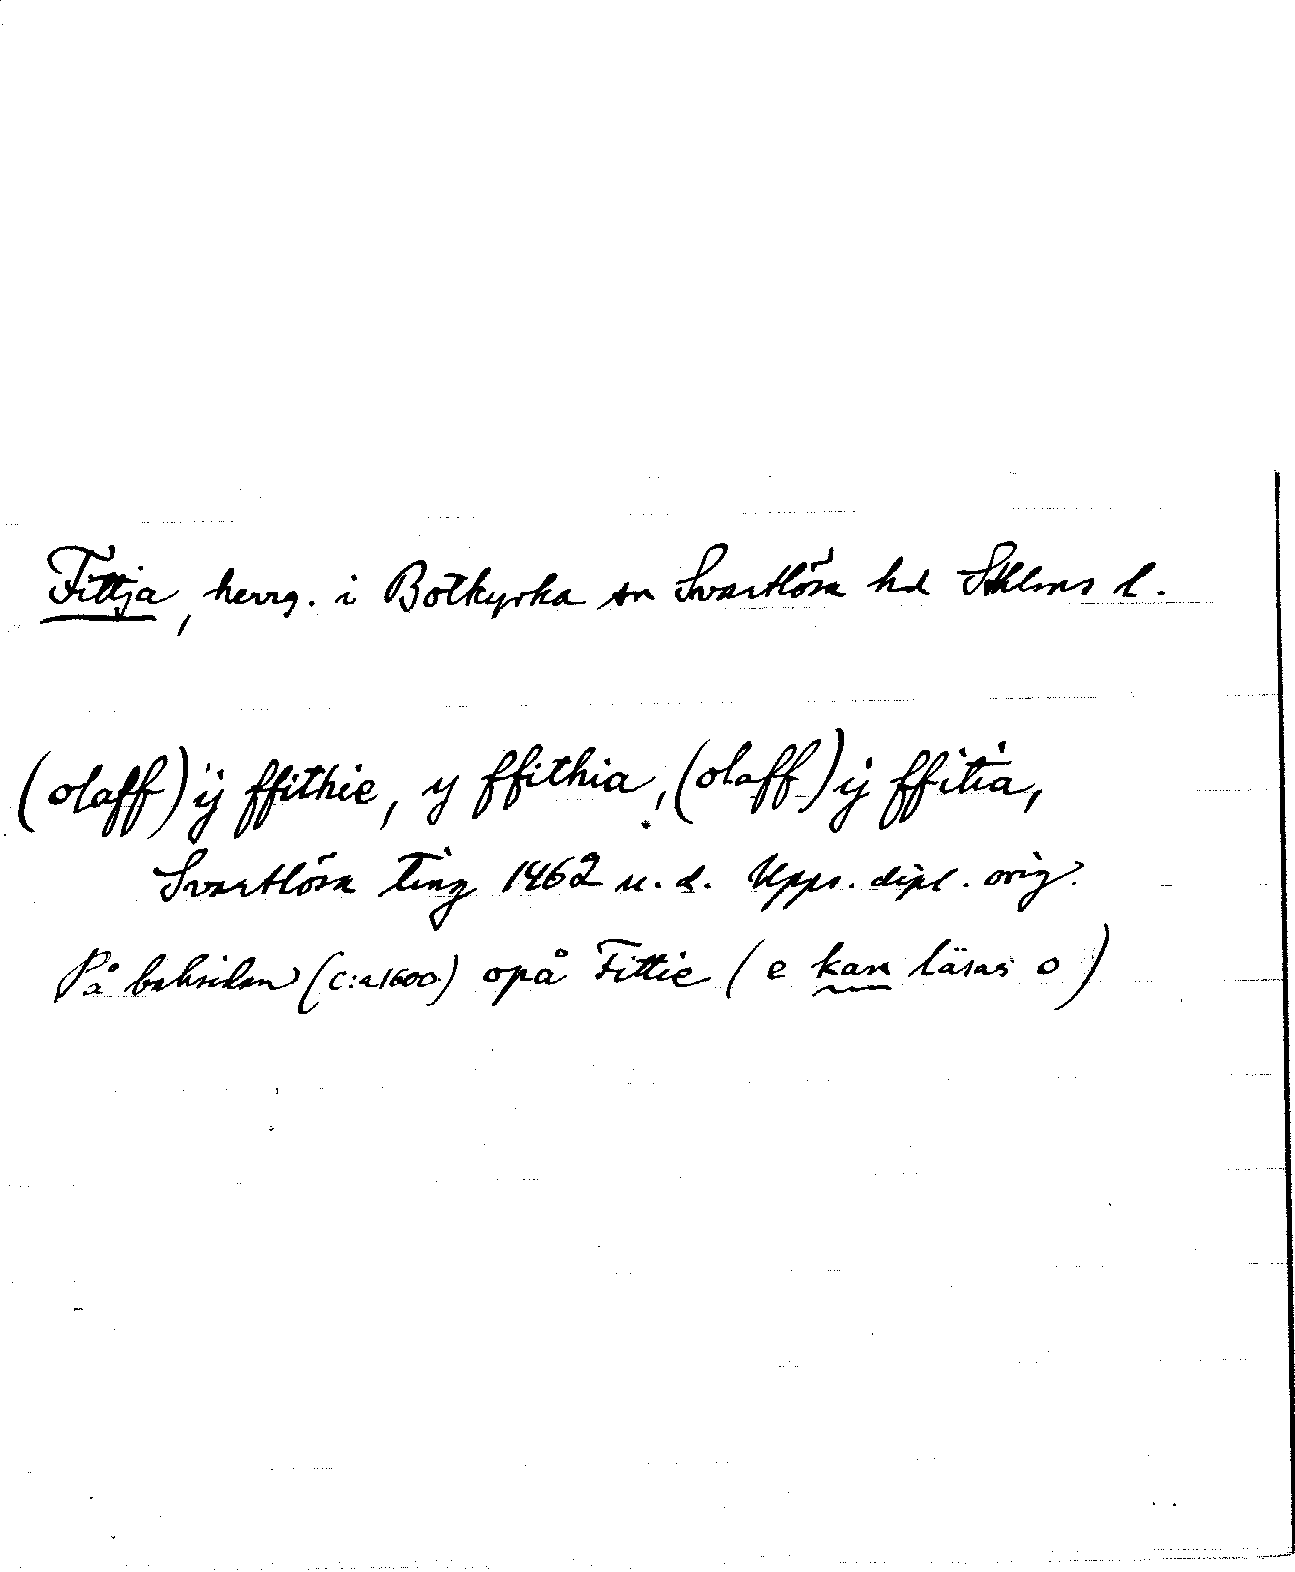 Fittja, herrg. i Botkyrka sn Svartlösa hd Sthlms l.
(olaff) ÿ ffithie, y ffithia, (olaff) ÿ ffitia,
Svartlösa ting 1462 u. d. Upps. dipl. orig.
På baksidan (c:a 1600) opå Fittie (e kan läsas o)